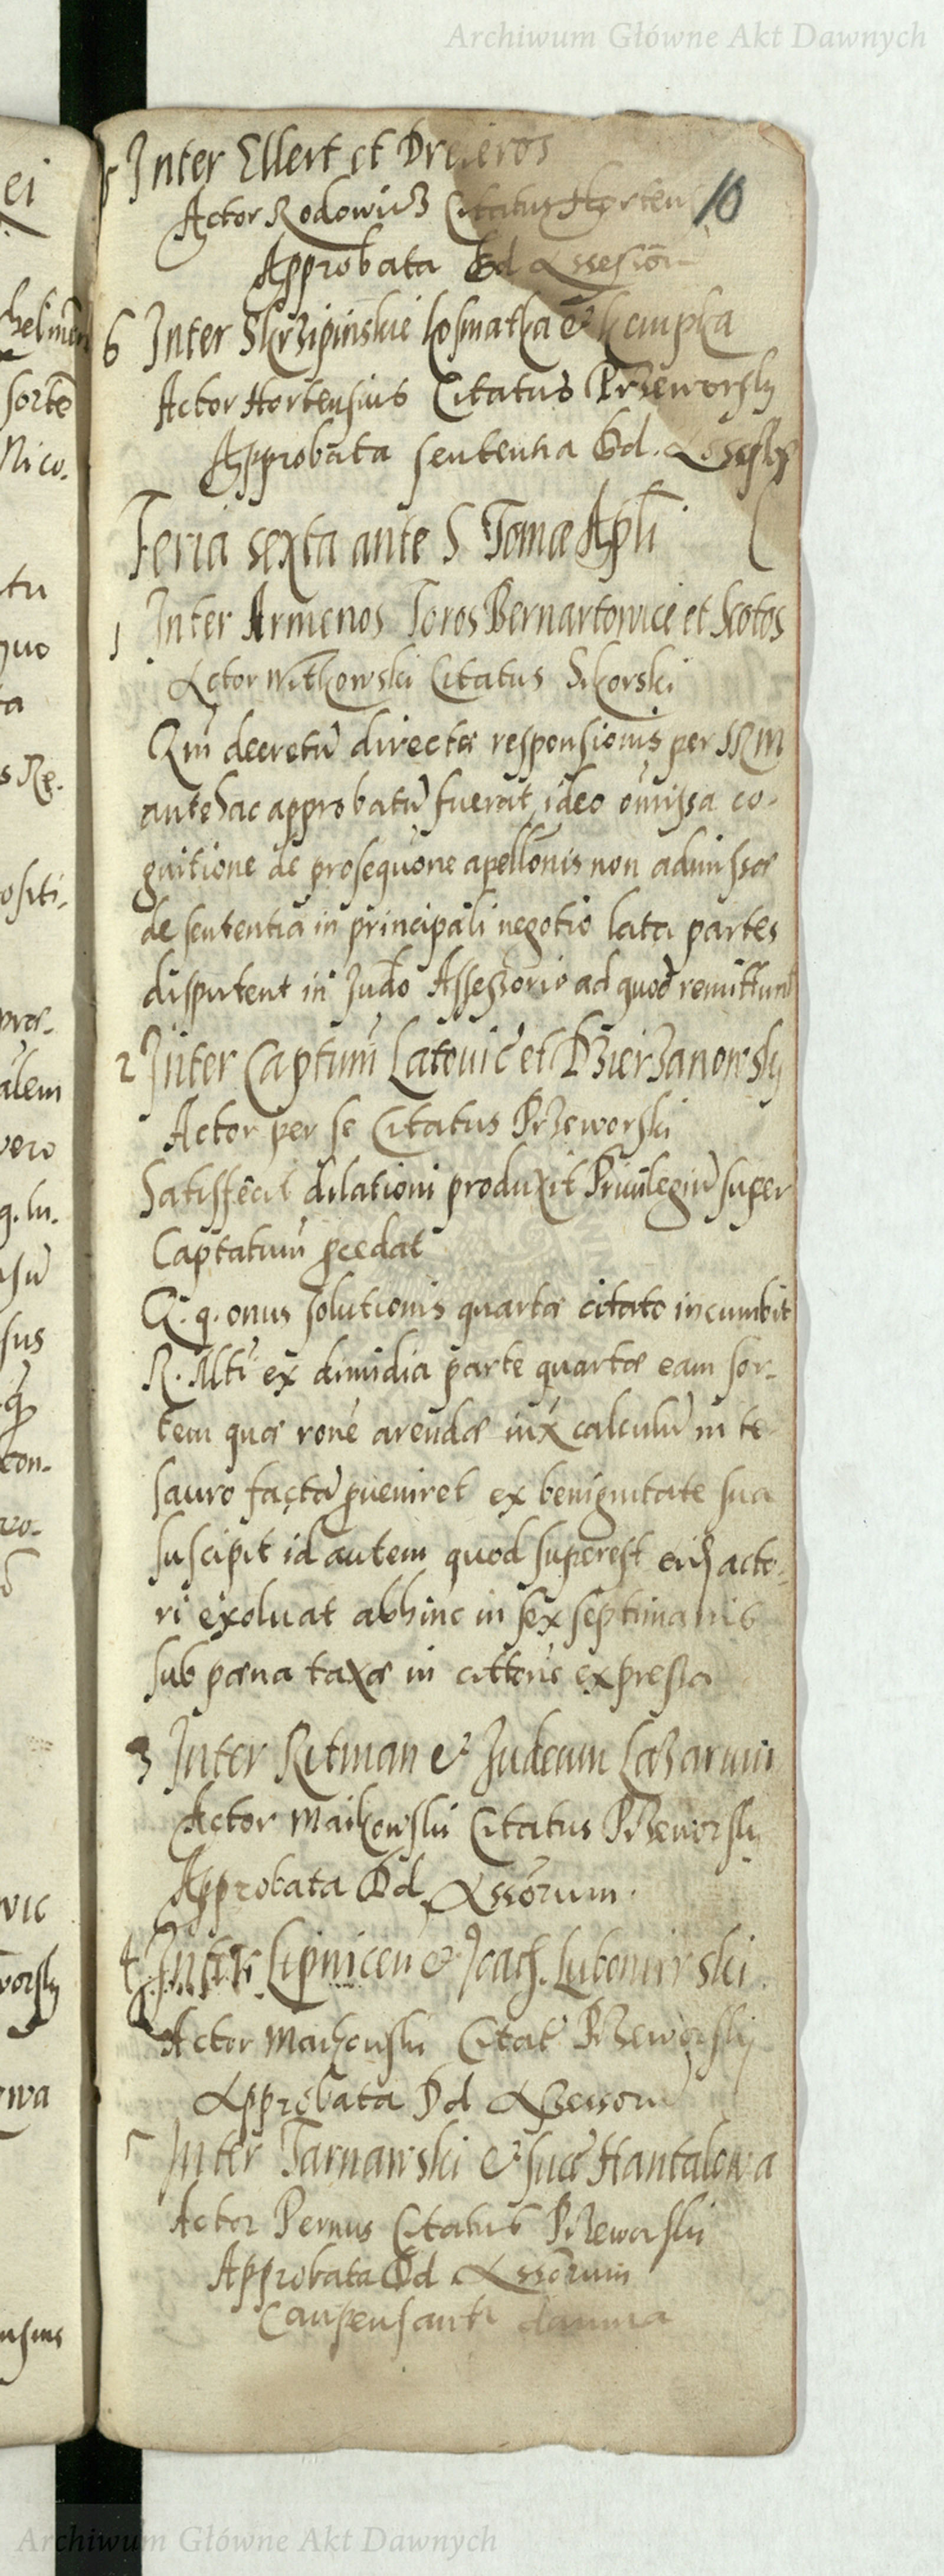 Archiwum Główne Akt Dawnych
10
5 Inter Ellert et Dreieros
Actor Rodowicz Citatus Horten
Approbata Dd Assesiorū
6 Inter Skrzipinskie kosmatka & kempka
Actor Hortensius Citatus Przeworsky
Approbata sententia Dd.
Feria sexta ante S Tomæ Apli
1 Inter Armenos Toros Bernartowice et Kotos
Actor Witkowski Citatus Sikorski
Qm̄ decretū directæ responsionis per SRM
antehac approbatū fuerat, ideo omissa co-
gnitione de prosequōne apellōnis non admissæ
de sententia in principali negotio lata partes
disputent in Judō Assessorio ad quod remittunt
2 Inter Captum Latovic et Dzierzanowsky
Actor per se Citatus Przeworski
Satisfecit dilationi produxit Privilegiū super
Captatum pcedat
Q. q. onus solutionis quartæ citato incumbit
R. Mti ex dimidia parte quartæ eam sor-
tem quæ rōne arendæ iux calculū in te
sauro factā pveniret ex benignitate sua
suscipit id autem quod superest acto-
ri exoluat abhinc in sex septimanis
sub pæna taxæ in cittōne expressa
3 Inter Ritman & Judeum Lazarum
Actor Maikowskii Citatus Przeworsky
Approbata Dd Assōrum.
4 Inter Lipnicen & Joach. Lubomirski
Actor Maikouski Citat Przeworsky
Approbata Dd Assessorū
5 Inter Tarnawski & suc Hantalowa
Actor Pernus Citatus Przeworski
Approbata Dd Assōrum
Caupensanti damna
Archiwum Główne Akt Dawnych